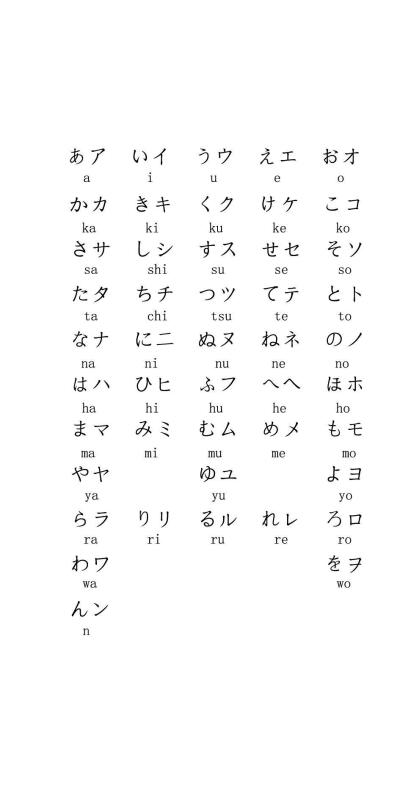 あア いイ うウ えエ おオ
a i u e o
かカ きキ くク けケ こコ
ka ki ku ke ko
さサ しシ すス せセ そソ
sa shi su se so
たタ ちチ つツ てテ とト
ta chi tsu te to
なナ にニ ぬヌ ねネ のノ
na ni nu ne no
はハ ひヒ ふフ へヘ ほホ
ha hi hu he ho
まマ みミ むム めメ もモ
ma mi mu me mo
やヤ ゆユ よヨ
ya yu yo
らラ りリ るル れレ ろロ
ra ri ru re ro
わワ をヲ
wa wo
んン
n